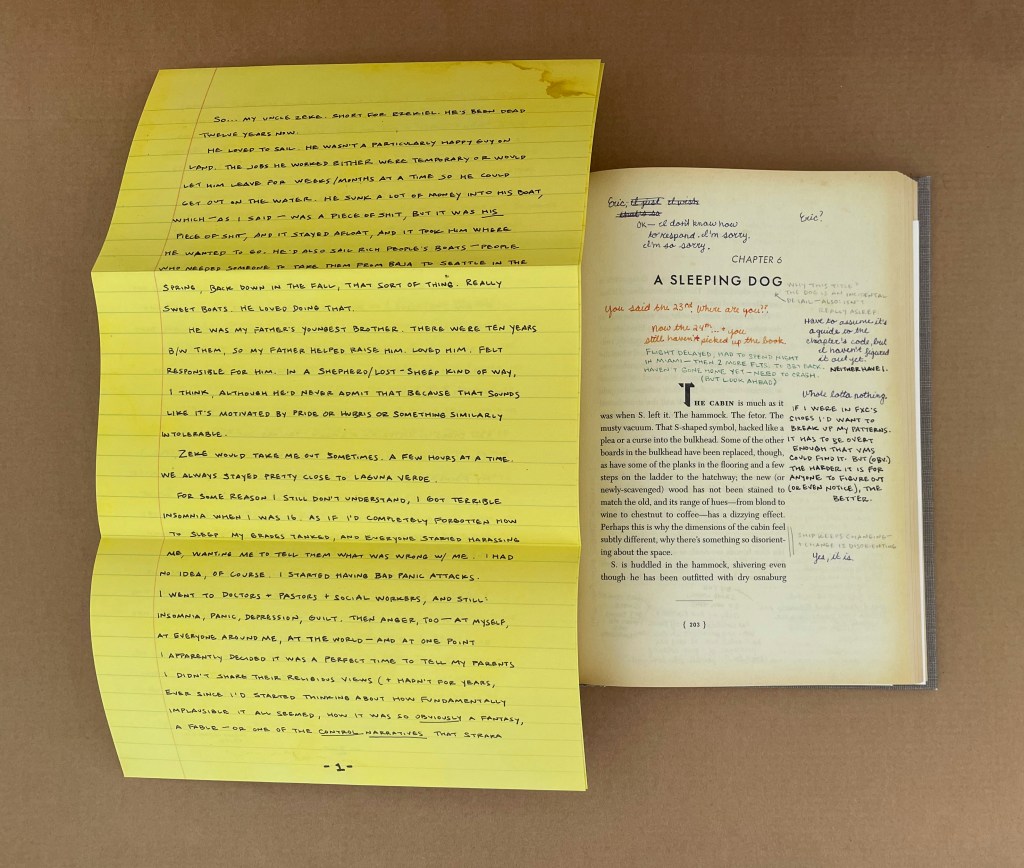 SO... MY UNCLE ZEKE. SHORT FOR EZEKIEL. HE'S BEEN DEAD
TWELVE YEARS NOW.
HE LOVED TO SAIL. HE WASN'T A PARTICULARLY HAPPY GUY ON
LAND. THE JOBS HE WORKED EITHER WERE TEMPORARY OR WOULD
LET HIM LEAVE FOR WEEKS/MONTHS AT A TIME SO HE COULD
GET OUT ON THE WATER. HE SUNK A LOT OF MONEY INTO HIS BOAT,
WHICH – AS I SAID – WAS A PIECE OF SHIT, BUT IT WAS HIS
PIECE OF SHIT, AND IT STAYED AFLOAT, AND IT TOOK HIM WHERE
HE WANTED TO GO. HE'D ALSO SAIL RICH PEOPLE'S BOATS – PEOPLE
WHO NEEDED SOMEONE TO TAKE THEM FROM BAJA TO SEATTLE IN THE
SPRING, BACK DOWN IN THE FALL, THAT SORT OF THING. REALLY
SWEET BOATS. HE LOVED DOING THAT.
HE WAS MY FATHER'S YOUNGEST BROTHER. THERE WERE TEN YEARS
B/W THEM, SO MY FATHER HELPED RAISE HIM. LOVED HIM. FELT
RESPONSIBLE FOR HIM. IN A SHEPHERD/LOST-SHEEP KIND OF WAY,
I THINK, ALTHOUGH HE'D NEVER ADMIT THAT BECAUSE THAT SOUNDS
LIKE IT'S MOTIVATED BY PRIDE OR HUBRIS OR SOMETHING SIMILARLY
INTOLERABLE.
ZEKE WOULD TAKE ME OUT SOMETIMES. A FEW HOURS AT A TIME.
WE ALWAYS STAYED PRETTY CLOSE TO LAGUNA VERDE.
FOR SOME REASON I STILL DON'T UNDERSTAND, I GOT TERRIBLE
INSOMNIA WHEN I WAS 16. AS IF I'D COMPLETELY FORGOTTEN HOW
TO SLEEP. MY GRADES TANKED, AND EVERYONE STARTED HARASSING
ME, WANTING ME TO TELL THEM WHAT WAS WRONG W/ ME. I HAD
NO IDEA, OF COURSE. I STARTED HAVING BAD PANIC ATTACKS.
I WENT TO DOCTORS + PASTORS + SOCIAL WORKERS, AND STILL:
INSOMNIA, PANIC, DEPRESSION, GUILT. THEN ANGER, TOO – AT MYSELF,
AT EVERYONE AROUND ME, AT THE WORLD – AND AT ONE POINT
I APPARENTLY DECIDED IT WAS A PERFECT TIME TO TELL MY PARENTS
I DIDN'T SHARE THEIR RELIGIOUS VIEWS (+ HADN'T FOR YEARS,
EVER SINCE I'D STARTED THINKING ABOUT HOW FUNDAMENTALLY
IMPLAUSIBLE IT ALL SEEMED, HOW IT WAS SO OBVIOUSLY A FANTASY,
A FABLE – OR ONE OF THE CONTROL NARRATIVES THAT STRAKA
- 1 -
Eric, it just it wish
that's so
OK – I don't know how
to respond. I'm sorry.
I'm so sorry.
Eric?
CHAPTER 6
A SLEEPING DOG
WHY THIS TITLE?
THE DOG IS AN INCIDENTAL
DETAIL – ALSO: ISN'T
REALLY ASLEEP
You said the 23rd. Where are you?!
Now the 24th... + you
still haven't picked up the book
FLIGHT DELAYED, HAD TO SPEND NIGHT
IN MIAMI – THEN 2 MORE FLTS. TO GET BACK.
HAVEN'T GONE HOME YET – NEED TO CRASH.
(BUT LOOK AHEAD)
Have to assume it's
a guide to the
chapter's code, but
I haven't figured
it out yet.
NEITHER HAVE I.
Whole lotta nothing
IF I WERE IN FXC'S
SHOES I'D WANT TO
BREAK UP MY PATTERNS.
IT HAS TO BE OVERT
ENOUGH THAT VMS
COULD FIND IT. BUT (OBV.)
THE HARDER IT IS FOR
ANYONE TO FIGURE OUT
(OR EVEN NOTICE), THE
BETTER.
THE CABIN is much as it
was when S. left it. The hammock. The fetor. The
musty vacuum. That S-shaped symbol, hacked like a
plea or a curse into the bulkhead. Some of the other
boards in the bulkhead have been replaced, though,
as have some of the planks in the flooring and a few
steps on the ladder to the hatchway; the new (or
newly-scavenged) wood has not been stained to
match the old, and its range of hues—from blond to
wine to chestnut to coffee—has a dizzying effect.
Perhaps this is why the dimensions of the cabin feel
subtly different, why there's something so disorient-
ing about the space.
S. is huddled in the hammock, shivering even
though he has been outfitted with dry osnaburg
SHIP KEEPS CHANGING –
+ CHANGE IS DISORIENTING
Yes, it is.
{ 203 }